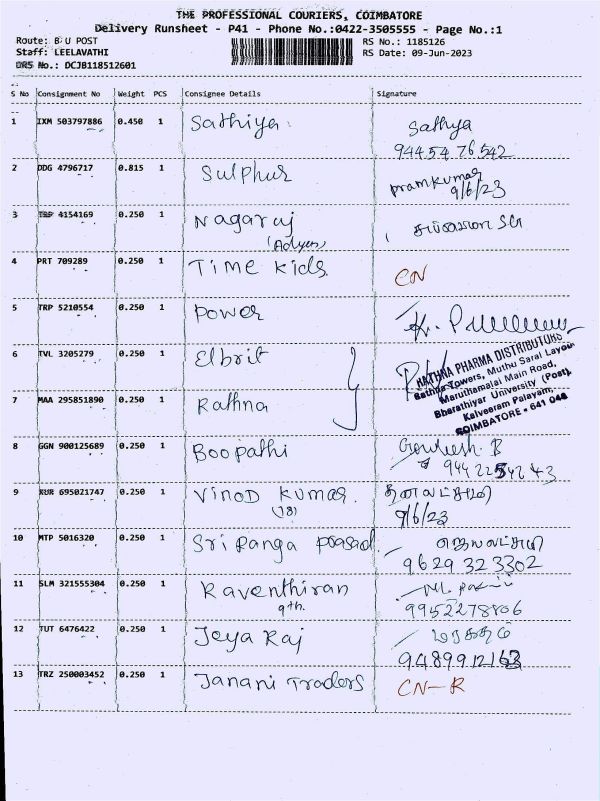 THE PROFESSIONAL COURIERS, COIMBATORE
Delivery Runsheet - P41 - Phone No.:0422-3505555 - Page No.:1
Route: B U POST
RS No.: 1185126
Staff: LEELAVATHI
RS Date: 09-Jun-2023
DRS No.: DCJB118512601
S No Consignment No Weight PCS Consignee Details Signature
1 IXM 503797886 0.450 1 Sathiya Sathya
94454 76542
2 DDG 4796717 0.815 1 Sulphur Pramkumar
9/6/23
3 TRP 4154169 0.250 1 Nagaraj
4 PRT 709289 0.250 1 Time Kids CN
5 TRP 5210554 0.250 1 Power
6 TVL 3205279 0.250 1 Elbrit
RATHNA PHARMA DISTRIBUTORS
Rathna Towers, Muthu Saral Layout
Maruthamalai Main Road,
Bharathiyar University (Post),
Kalveeram Palayam,
COIMBATORE - 641 046
7 MAA 295851890 0.250 1 Rathna
8 GGN 900125689 0.250 1 Boopathi
9 KUR 695021747 0.250 1 Vinod Kumar
(J8) 9/6/23
10 MTP 5016320 0.250 1 Sri Ranga Prasad
9629 32 3302
11 SLM 321555304 0.250 1 Raventhiran
9th. 9952278806
12 TUT 6476422 0.250 1 Jeya Raj
9489912163
13 TRZ 250003452 0.250 1 Janani Traders CN-R